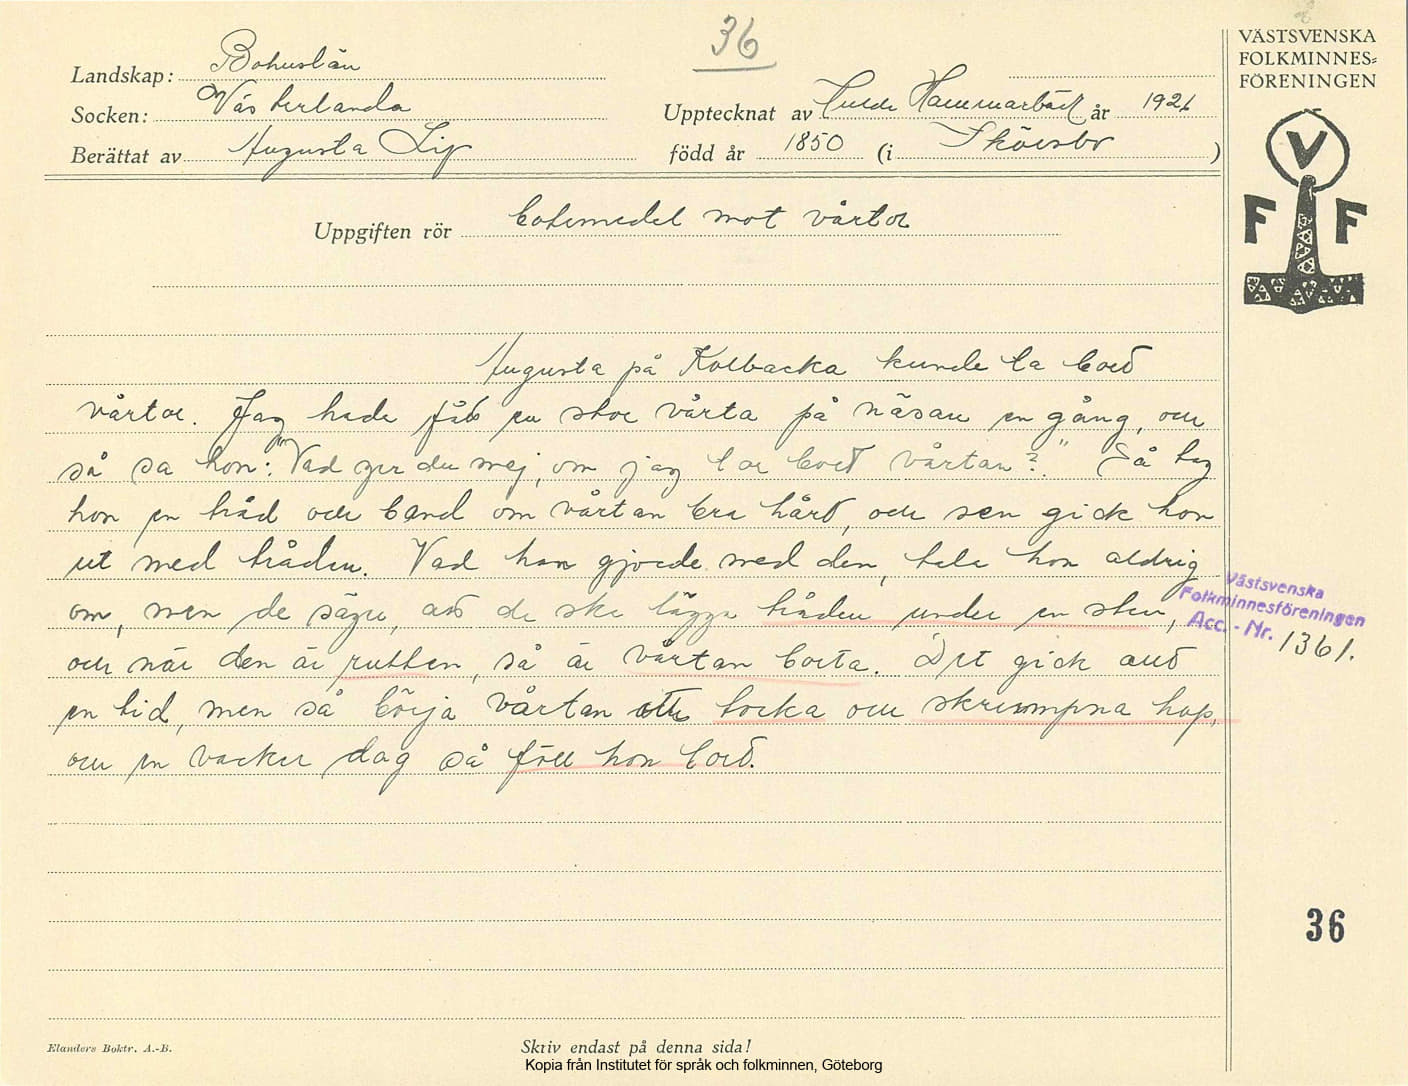 36
VÄSTSVENSKA
FOLKMINNES=
FÖRENINGEN
Landskap: Bohuslän
Socken: Västerlanda Upptecknat av Hammarbäck år 1926
Berättat av Augusta född år 1850 (i )
Uppgiften rör Botemedel mot vårtor
V
F F
Augusta på Kolbacka kunde ta bort
vårtor. Jag hade fåt en stor vårta på näsan en gång, och
så sa hon: "Vad ger du mej, om jag tar bort vårtan?" Så tog
hon en tråd och band om vårtan bra hårt, och sen gick hon
ut med tråden. Vad hon gjorde med den, tala hon aldrig
om, men de säger, att de ska lägga tråden under en sten,
och när den är rutten, så är vårtan borta. Det gick ant
en tid, men så börja vårtan att torka och skrumpna hop,
och en vacker dag så föll hon bort.
Västsvenska
Folkminnesföreningen
Acc. - Nr. 1361.
36
Elanders Boktr. A.-B.
Skriv endast på denna sida!
Kopia från Institutet för språk och folkminnen, Göteborg